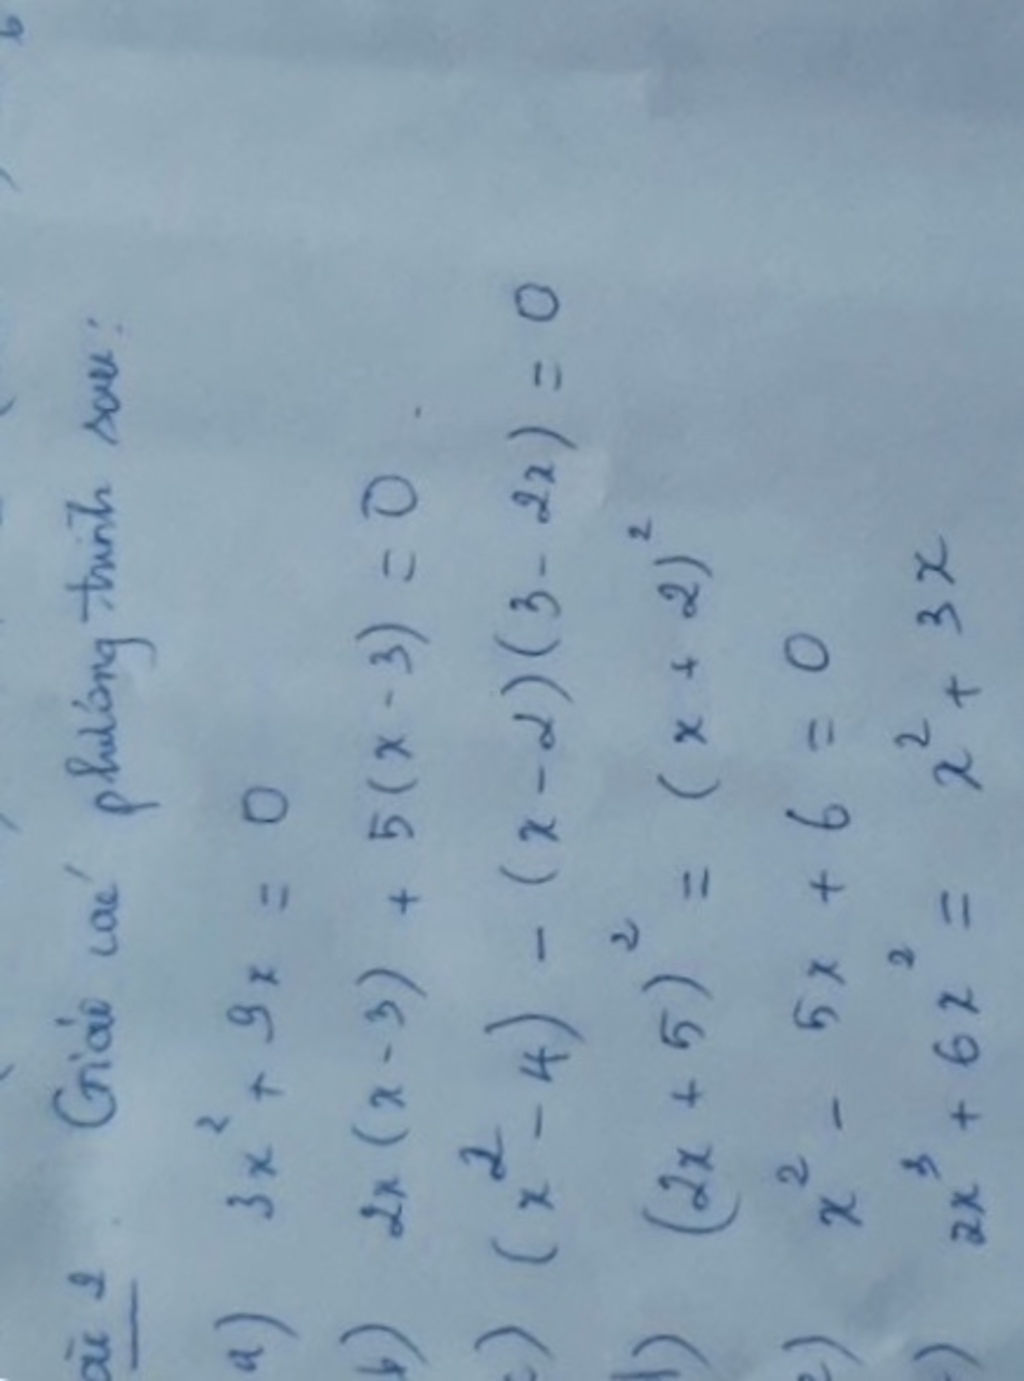 ài 2. Giải các phương trình sau:
a) 3x² + 9x = 0
b) 2x(x-3) + 5(x-3) = 0
c) (x²-4) - (x-2)(3-2x) = 0
d) (2x+5)² = (x+2)²
e) x² - 5x + 6 = 0
) 2x³ + 6x² = x² + 3x